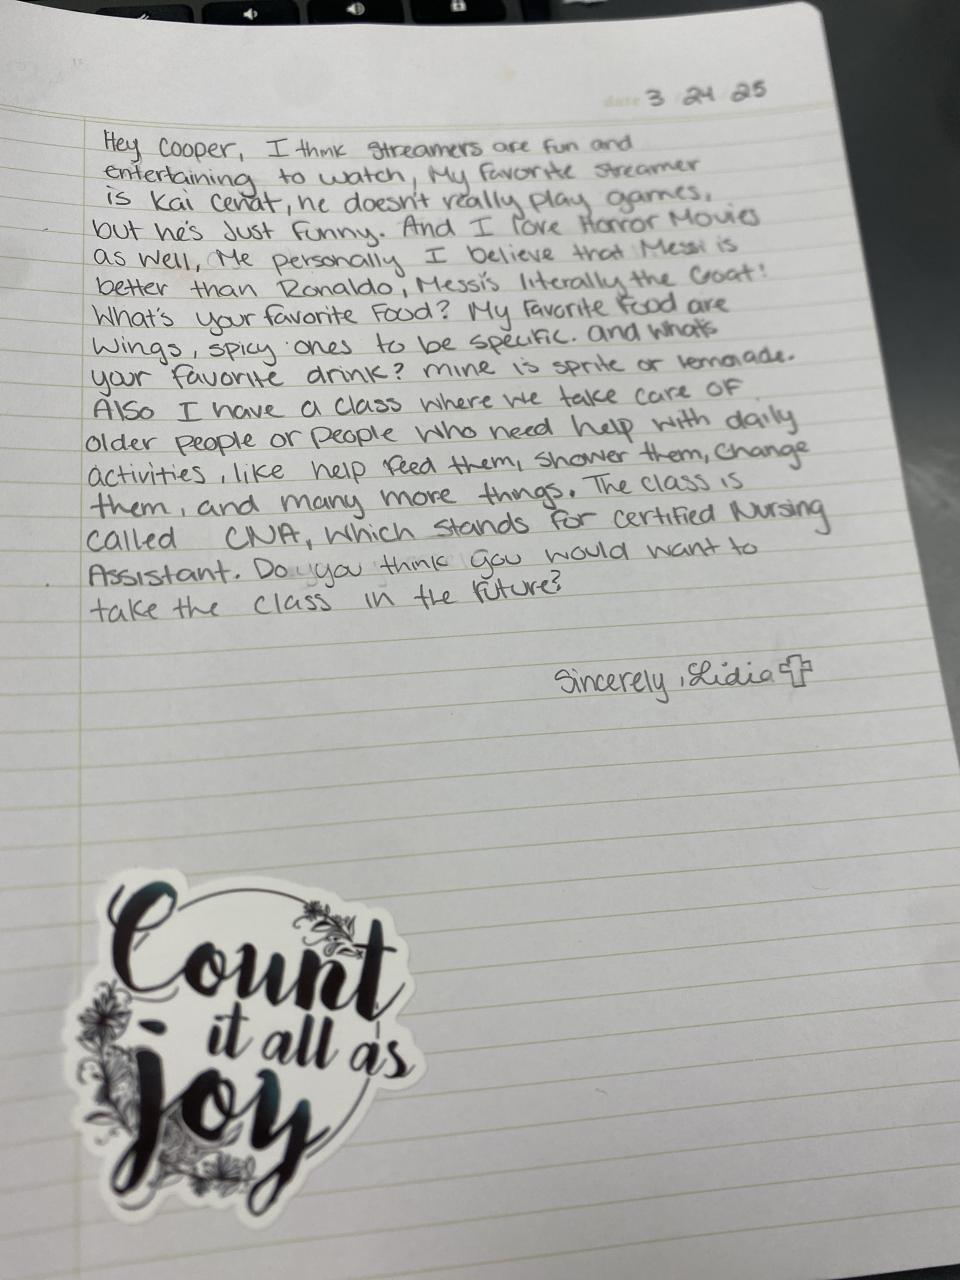 date 3 24 25
Hey Cooper, I think streamers are fun and
entertaining to watch, My favorite streamer
is Kai Cenat, he doesn't really play games,
but he's just funny. And I love Horror Movies
as well, Me personally I believe that Messi is
better than Ronaldo, Messi's literally the Goat!
What's your favorite Food? My favorite food are
wings, spicy ones to be specific. and what's
your favorite drink? mine is sprite or lemonade.
Also I have a class where we take care of
older people or people who need help with daily
activities, like help feed them, shower them, change
them, and many more things. The class is
called CNA, which stands for certified Nursing
Assistant. Do you think you would want to
take the class in the future?
Sincerely, Lidia
Count
it all as
joy